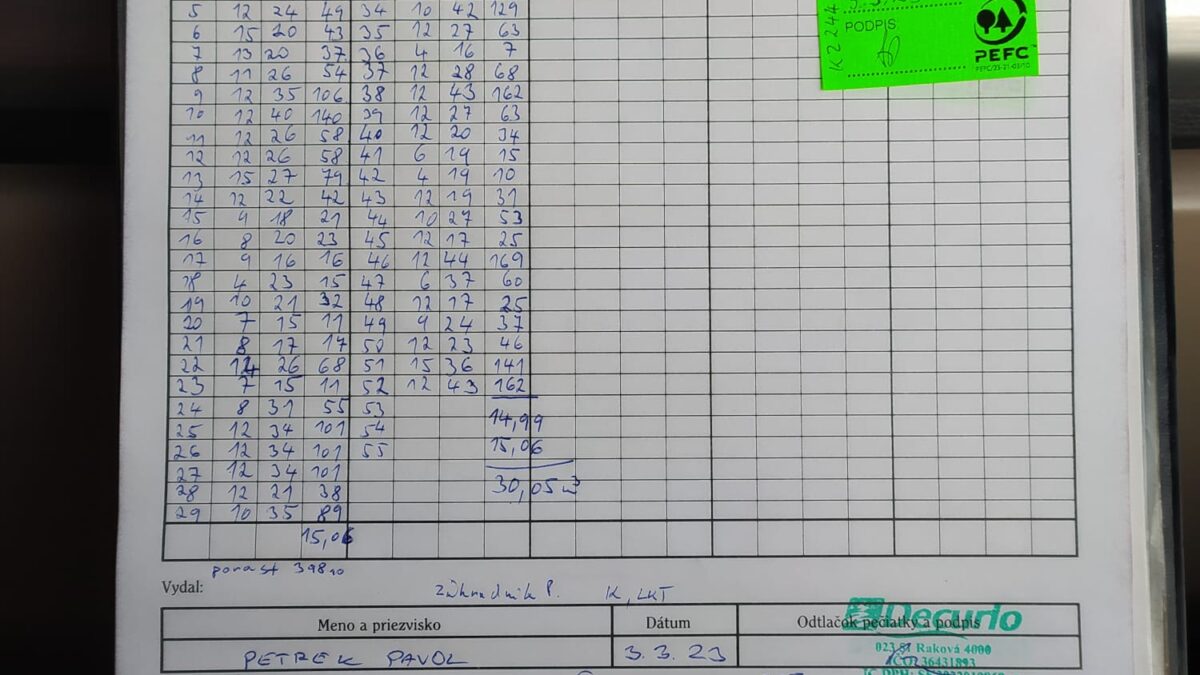 5 12 24 49 34 10 42 129
6 15 20 43 35 12 27 63
7 13 20 37 36 4 16 7
8 11 26 54 37 12 28 68
9 12 35 106 38 12 43 162
10 12 40 140 39 12 27 63
11 12 26 58 40 12 20 34
12 12 26 58 41 6 19 15
13 15 27 79 42 4 19 10
14 12 22 42 43 12 19 31
15 9 18 21 44 10 27 53
16 8 20 23 45 12 17 25
17 9 16 16 46 12 44 169
18 4 23 15 47 6 37 60
19 10 21 32 48 12 17 25
20 7 15 11 49 9 24 37
21 8 17 17 50 12 23 46
22 26 68 51 15 36 141
23 7 15 11 52 12 43 162
24 8 31 55 53
25 12 34 101 54 14,99
26 12 34 101 55 15,06
27 12 34 101
28 12 21 38 30,05 m3
29 10 35 89
15,06
porast 398
Vydal: Záhradník P. K, LKT
Meno a priezvisko Dátum Odtlačok pečiatky a podpis
PETREK PAVOL 3.3.23
KZ244
PODPIS
PEFC
Decurlo
023 51 Raková 4000
IČO: 36431893